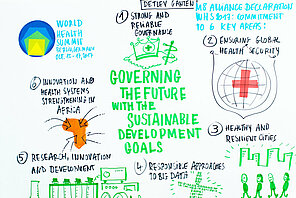 DETLEV GANTEN
M8 ALLIANCE DECLARATION
WHS 2017: COMMITMENT
TO 6 KEY AREAS:
WORLD
HEALTH
SUMMIT
OCT 15-17, 2017
① STRONG AND
RELIABLE
GOVERNANCE
② ENSURING GLOBAL
HEALTH SECURITY
GOVERNING
THE FUTURE
WITH THE
SUSTAINABLE
DEVELOPMENT
GOALS
③ HEALTHY AND
RESILIENT CITIES
④ RESPONSIBLE APPROACHES
TO BIG DATA
⑤ RESEARCH, INNOVATION
AND DEVELOPMENT
⑥ INNOVATION AND
HEALTH SYSTEMS
STRENGTHENING IN
AFRICA